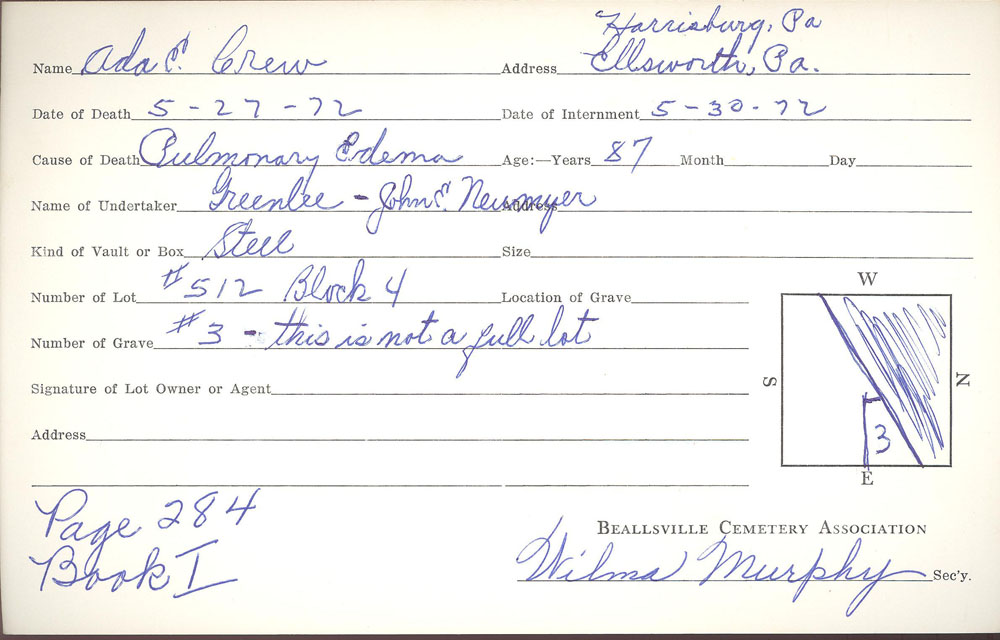 Harrisburg, Pa
Name Ada E. Crew Address Ellsworth, Pa.
Date of Death 5-27-72 Date of Internment 5-30-72
Cause of Death Pulmonary Edema Age:—Years 87 Month Day
Name of Undertaker Greenlee - John E. Neumyer Address
Kind of Vault or Box Steel Size
Number of Lot #512 Block 4 Location of Grave
Number of Grave #3 - this is not a full lot
Signature of Lot Owner or Agent
Address
W
S
N
3
E
Page 284
Book I
Beallsville Cemetery Association
Wilma Murphy Sec'y.